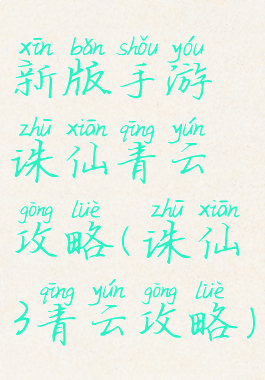 xīn bǎn shǒu yóu
新版手游
zhū xiān qīng yún
诛仙青云
gōng lüè zhū xiān
攻略(诛仙
qīng yún gōng lüè
3青云攻略)